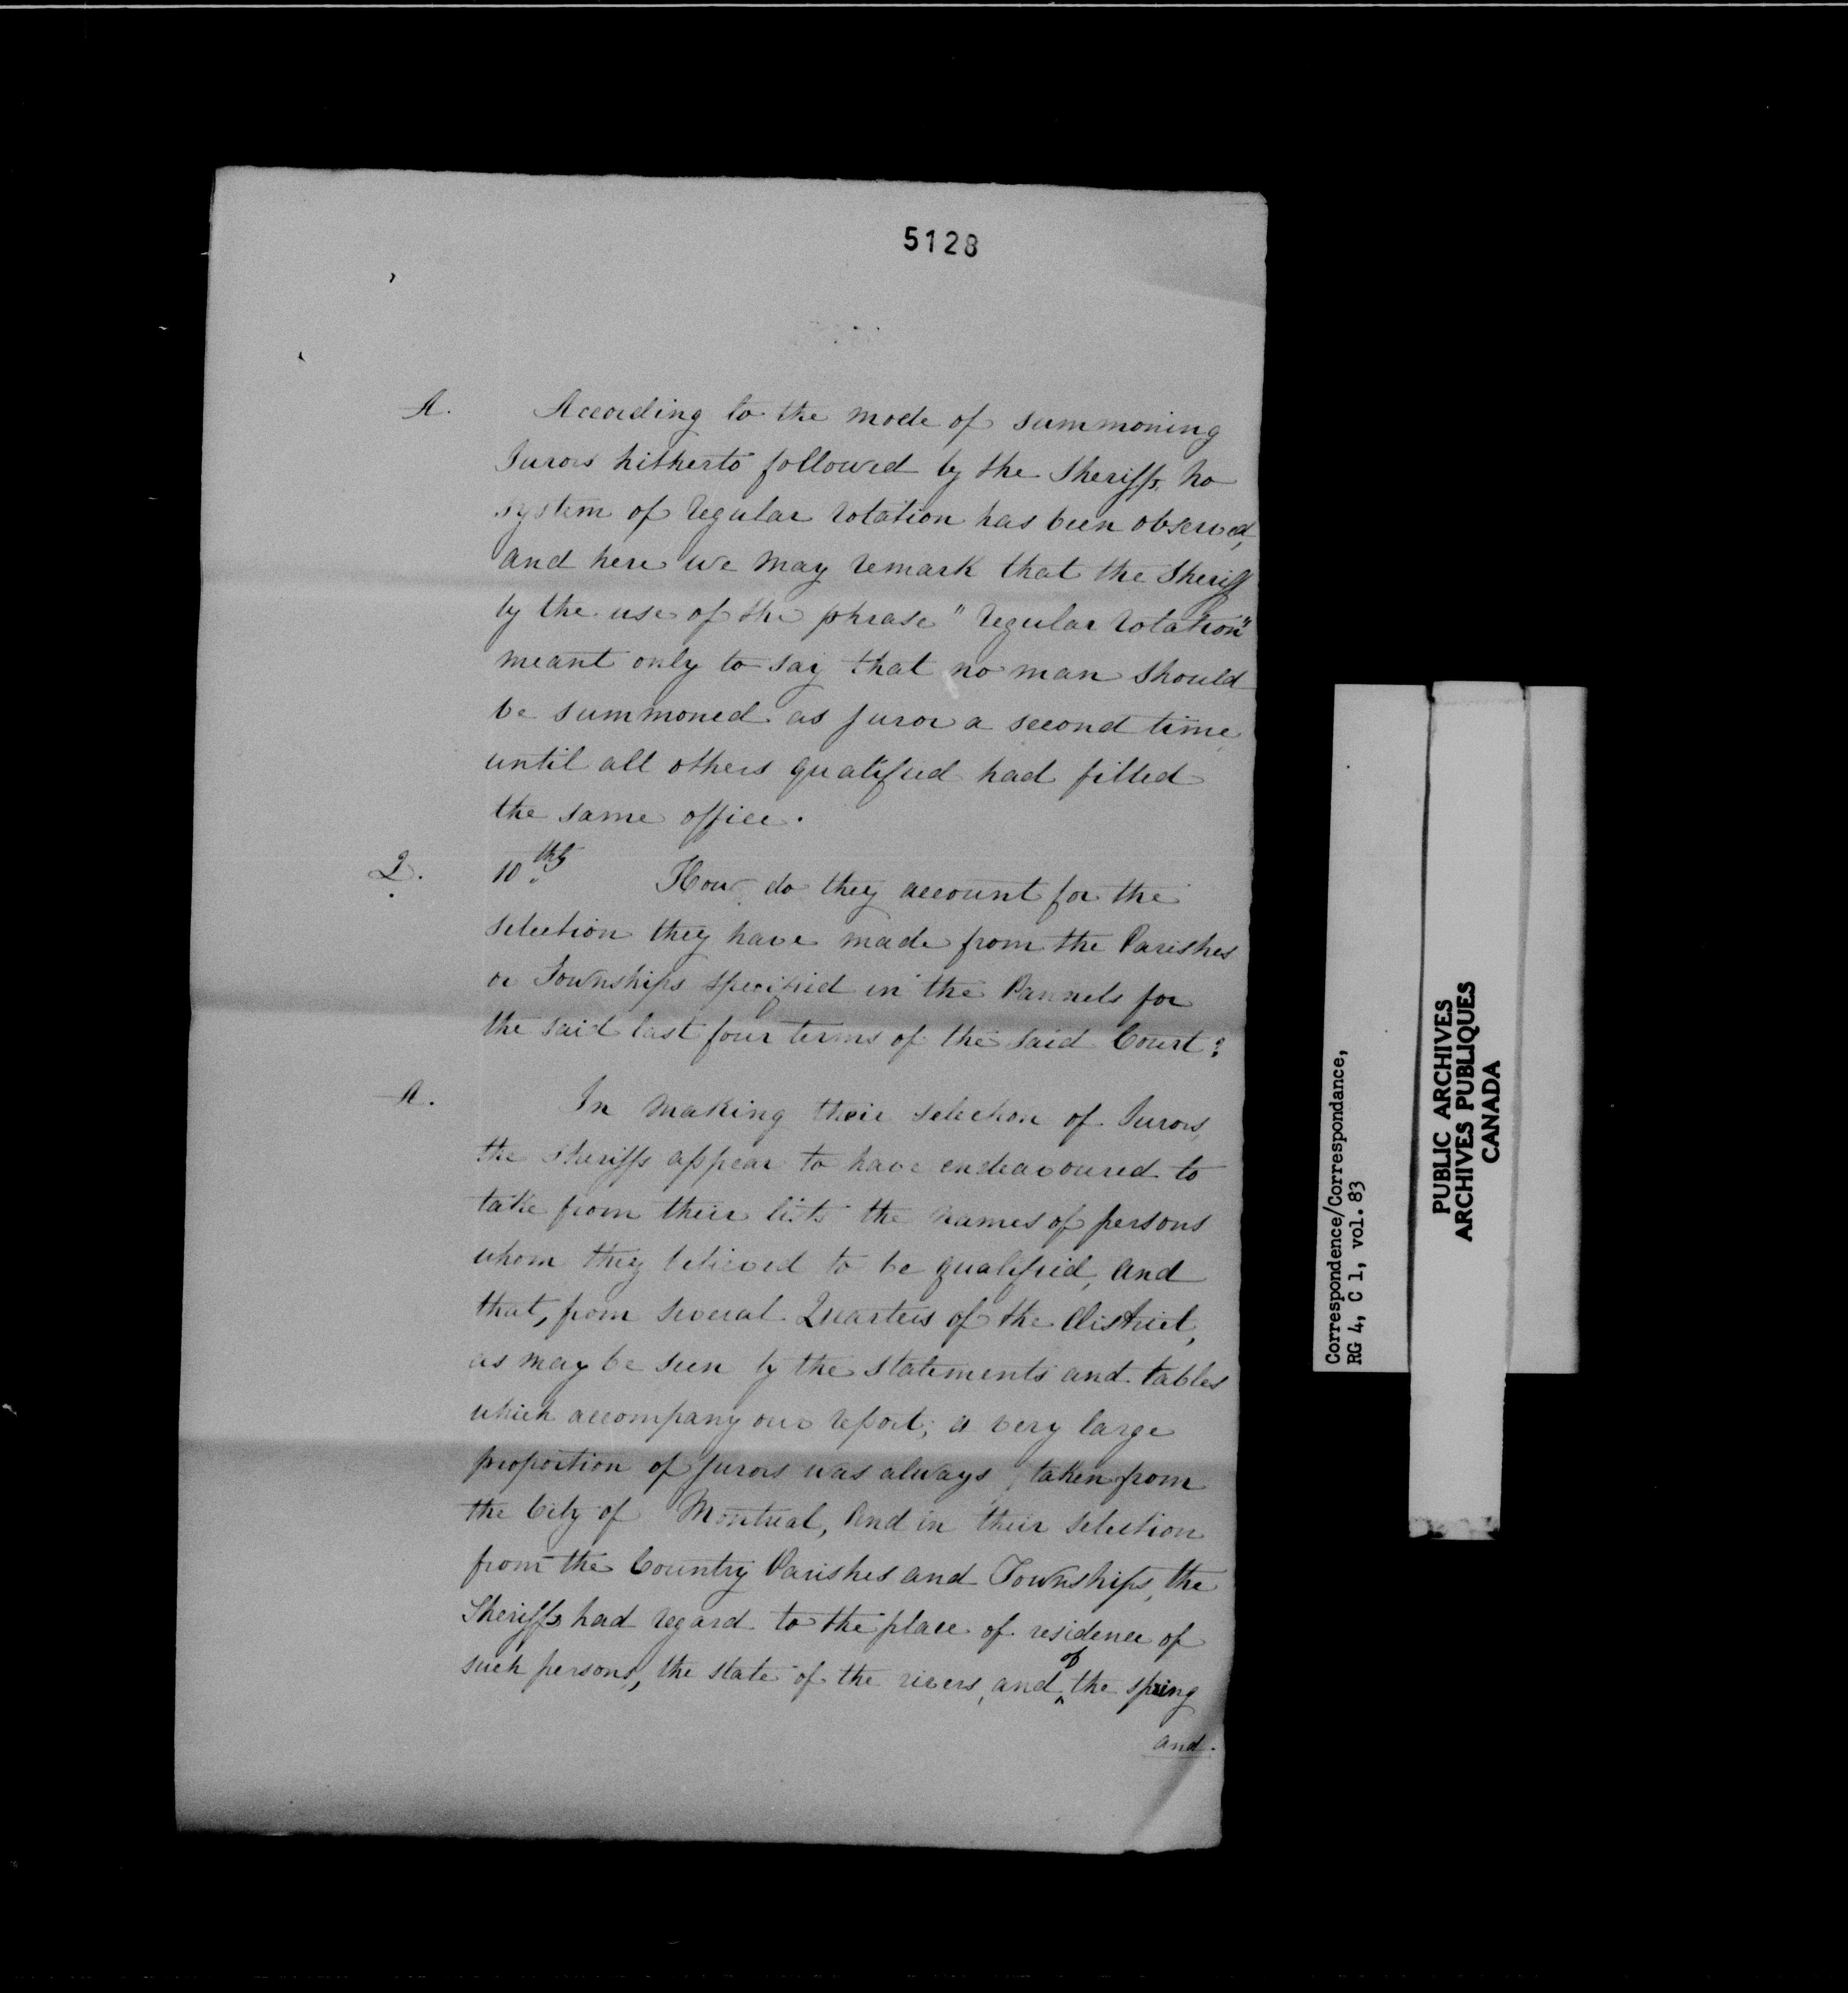 5128
A. According to the mode of summoning
Jurors hitherto followed by the Sheriffs, no
system of regular rotation has been observed,
and here we may remark that the Sheriff
by the use of the phrase "regular rotation"
meant only to say that no man should
be summoned as juror a second time
until all others qualified had filled
the same office.
Q. 10thly How do they account for the
selection they have made from the Parishes
or Townships specified in the Pannels for
the said last four terms of the said Court?
A. In making their selection of Jurors,
the Sheriffs appear to have endeavoured to
take from their lists the names of persons
whom they believed to be qualified, and
that, from several Quarters of the District,
as may be seen by the statements and tables
which accompany our report; a very large
proportion of jurors was always taken from
the City of Montreal, and in their selection
from the Country Parishes and Townships, the
Sheriffs had regard to the place of residence of
such persons, the state of the rivers, and of the spring
and
Correspondence/Correspondance,
RG 4, C 1, vol. 83
PUBLIC ARCHIVES
ARCHIVES PUBLIQUES
CANADA